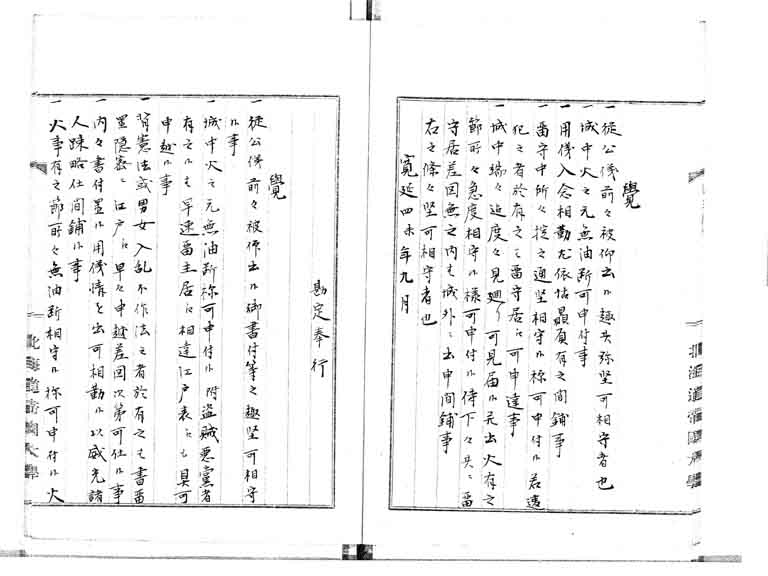 覺
一 従公儀前々被仰出候趣共弥堅可相守者也
一 城中火之元無油断可申付事
一 用儀入念相勤尤依怙贔屓有之間鋪事
一 留守中所々掟之通堅相守候様可申付候若違
犯之者於有之ニ留守居江可申達事
一 城中端々迄度々見廻り可見届候尤出火有之
節所々急度相守候様可申付候侍下々共ニ留
守居差図無之内者城外江出申間鋪事
右之條々堅可相守者也
寛延四未年九月
勘定奉行
覺
一 従公儀前々被仰出候御書付等之趣堅可相守
候事
一 城中火之元無油断様可申付候附盗賊悪黨者
有之候者早速留主居江相達江戸表江も具可
申越候事
一 背憲法或男女入乱不作法之者於有之者書留
置隠密ニ江戸江早々申越差図次第可仕候事
一 内々書付置候用儀情を出可相勤候以威光諸
人疎略仕間鋪候事
一 火事有之節所々無油断相守候様可申付候火
北海道帝國大學
北海道帝國大學